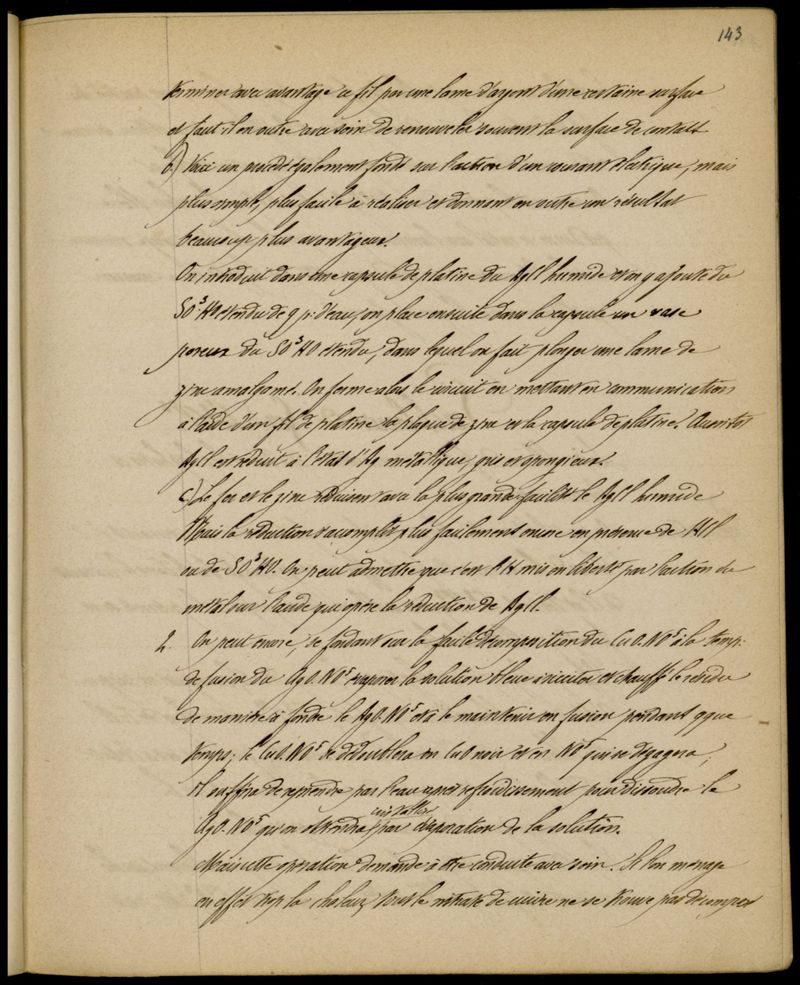 143
terminer avec avantage ce fil par une lame d'argent d'une certaine surface
et faut-il en outre avoir soin de renouveler souvent la surface de contact
b.) Voici un procédé également fondé sur l'action d'un courant électrique, mais
plus simple, plus facile à réaliser et donnant en outre un résultat
beaucoup plus avantageux.
On introduit dans une capsule de platine du AgCl humide et on y ajoute du
SO³HO étendu de 9 p. d'eau, on place ensuite dans la capsule un vase
poreux du SO³HO étendu, dans lequel on fait plonger une lame de
zinc amalgamé. On ferme alors le circuit en mettant en communication
à l'aide d'un fil de platine la plaque de zinc et la capsule de platine. Aussitôt
AgCl est réduit à l'état d'Ag métallique, gris et spongieux.
c) Le fer et le zinc réduisent avec la plus grande facilité le AgCl humide
Mais la réduction s'accomplit plus facilement encore en présence de HCl
ou de SO³HO. On peut admettre que c'est l'H mis en liberté par l'action du
métal sur l'acide qui opère la réduction de AgCl.
2. On peut encore, se fondant sur la facile décomposition du CuO.NO⁵ à la temp.
de fusion du AgO.NO⁵ évaporer la solution bleue à siccité et chauffer le résidu
de manière à fondre le AgO.NO⁵ et à le maintenir en fusion pendant qque
temps; le CuO.NO⁵ se dédoublera en CuO noir et en NO⁵ qui se dégagera;
il suffira de reprendre par l'eau après refroidissement pour dissoudre le
AgO.NO⁵ qu'on obtiendra cristallisé par évaporation de la solution.
Mais cette opération demande à être conduite avec soin. Si l'on ménage
en effet trop la chaleur, tout le nitrate de cuivre ne se trouve pas décomposé